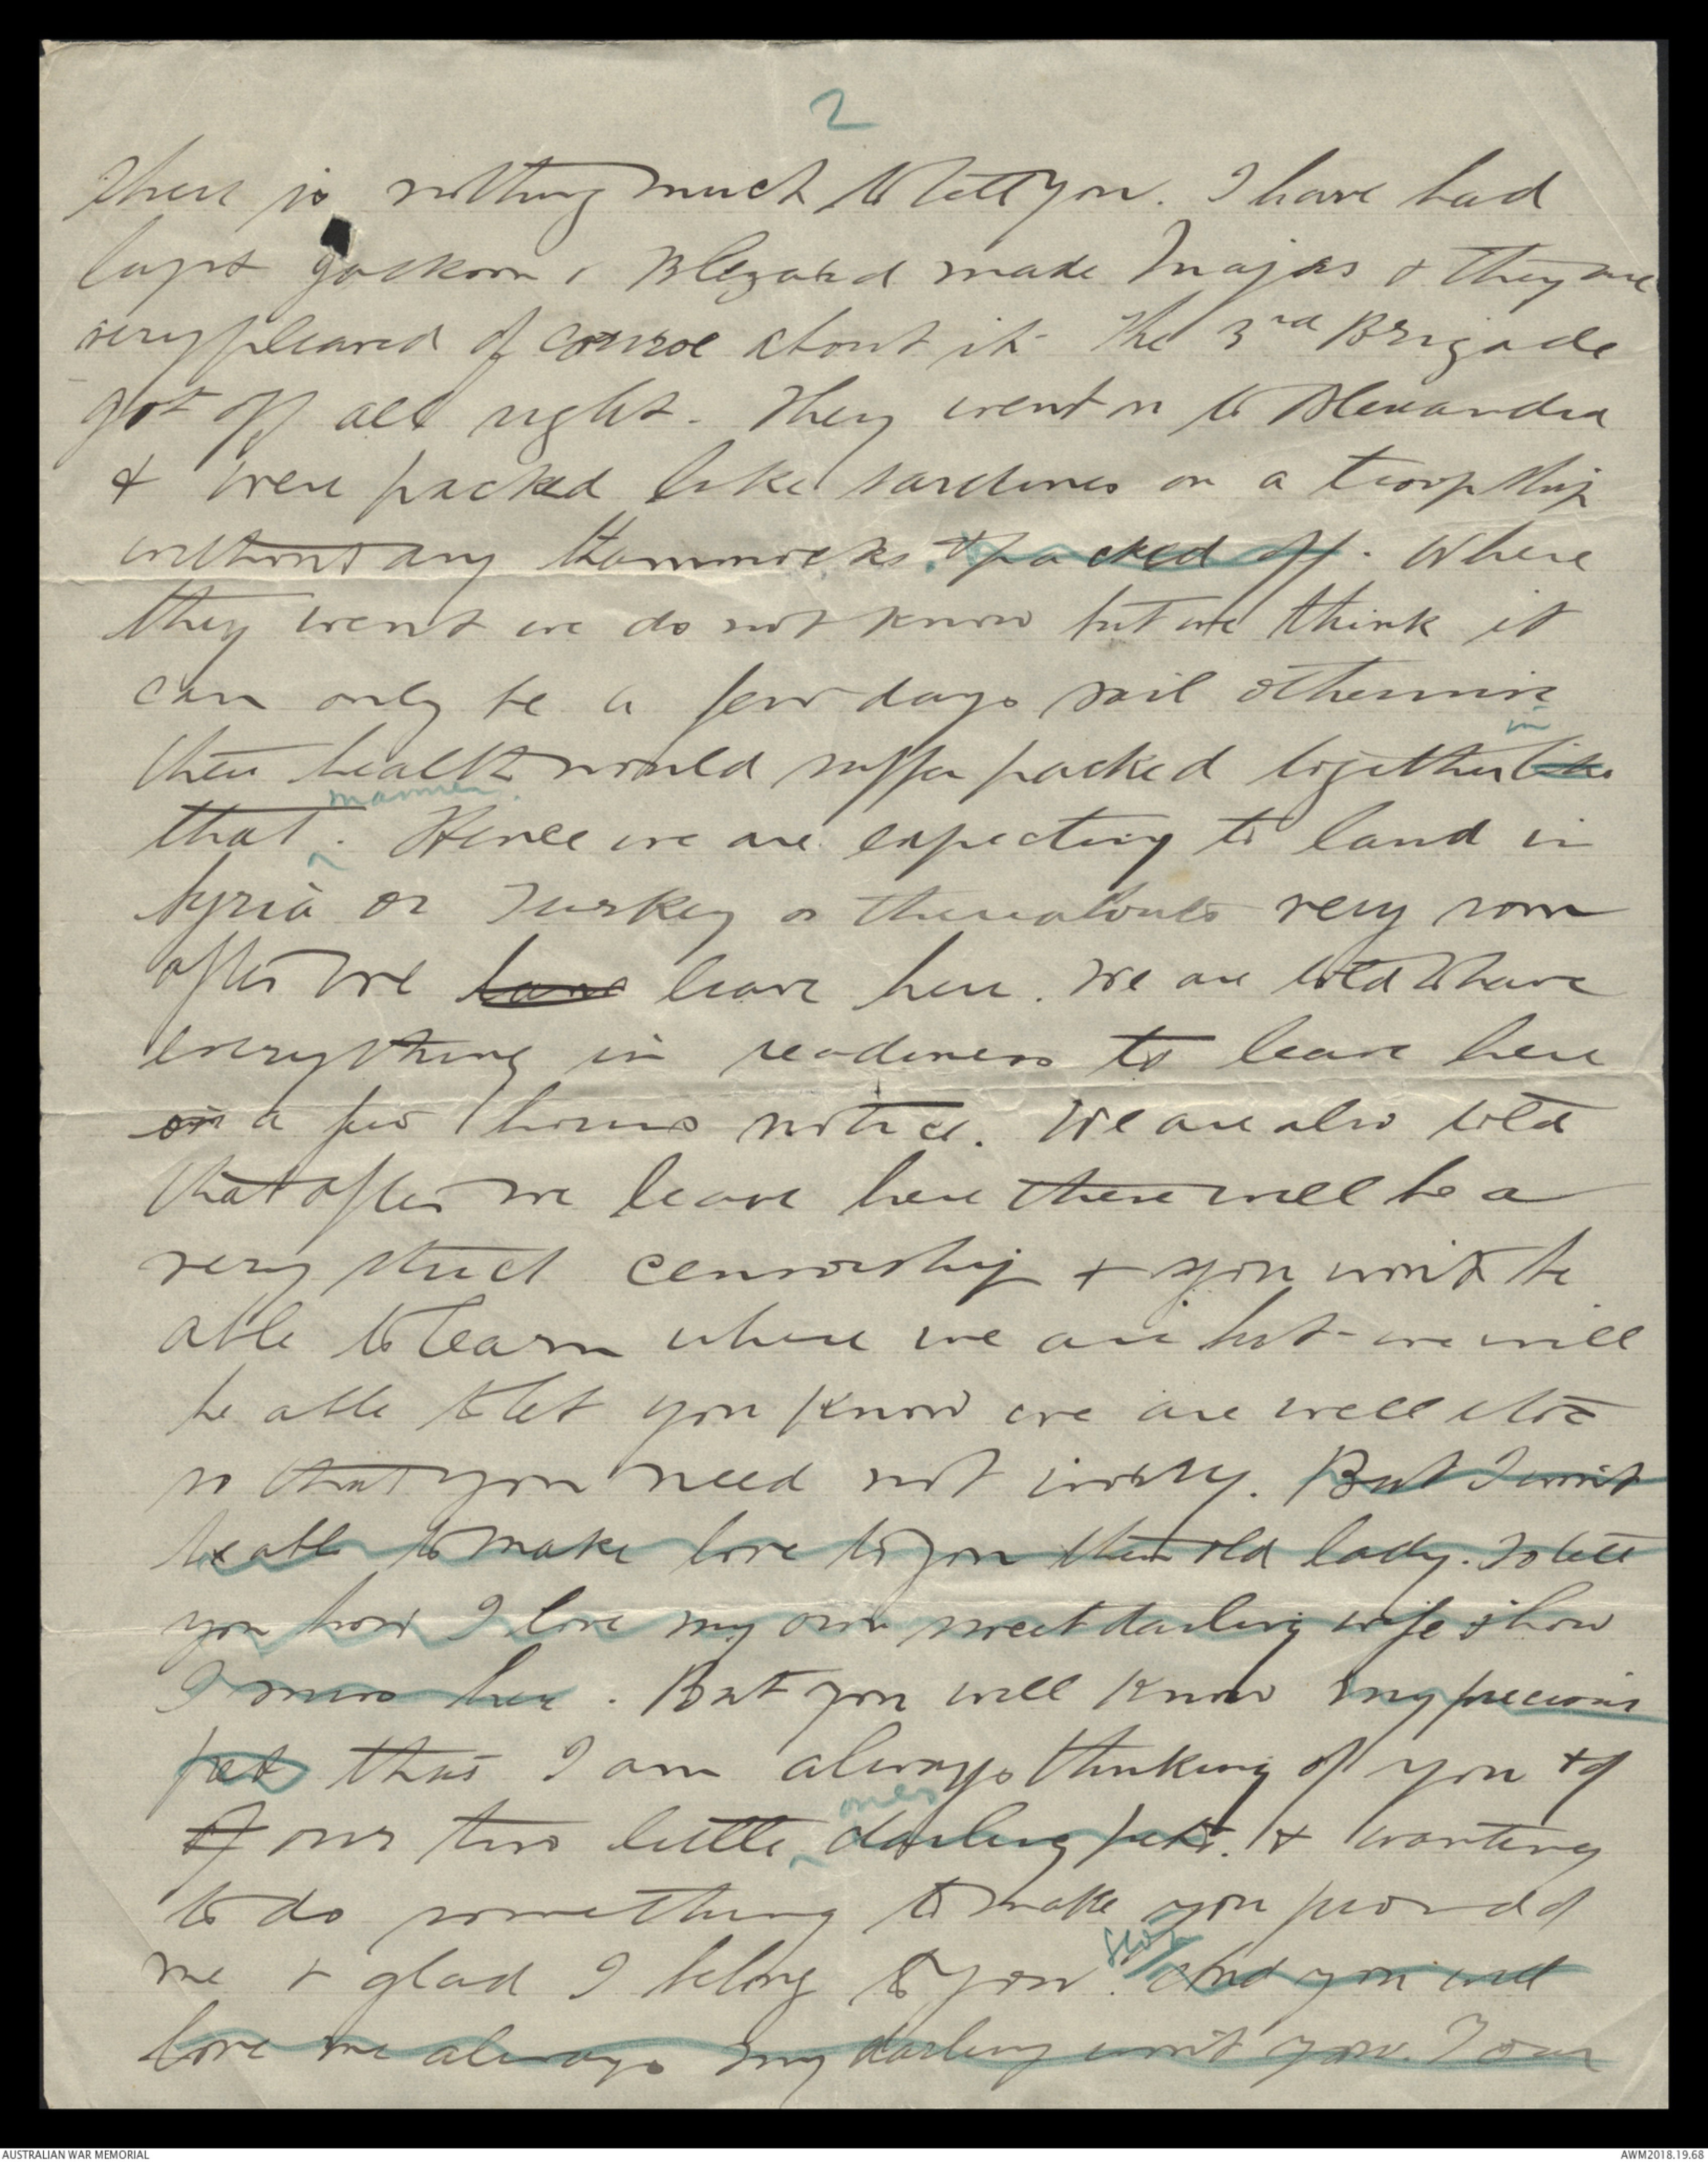 2
There is nothing much to tell you. I have had
Capt Jackson & Blezard made Majors & they are
very pleased of course about it. The 3rd Brigade
got off all right. They went on to Alexandra
& were packed like sardines on a troopship
without any Hammocks & packed off. Where
they went we do not know but we think it
can only be a few days sail otherwise
in
their health would suffer packed together like
manner
that. Hence we are expecting to land in
Syria or Turkey or thereabouts very soon
after we leave here. We are told to have
everything in readiness to leave here
on a few hours notice. We are also told
that after we leave here there will be a
very strict censorship & you won't be
able to learn where we are but we will
be able to let you know we are well etc
so that you need not worry. But I won't
be able to make love to you then old lady. To tell
you how I love my own sweet darling wife & how
I miss her. But you will know my precious
pet that I am always thinking of you & of
ones
of our two little darling pets. & wanting
to do something to make you proud of
me & glad I belong to you. And you will
love me always my darling won't you. Your
AUSTRALIAN WAR MEMORIAL
AWM2018.19.68